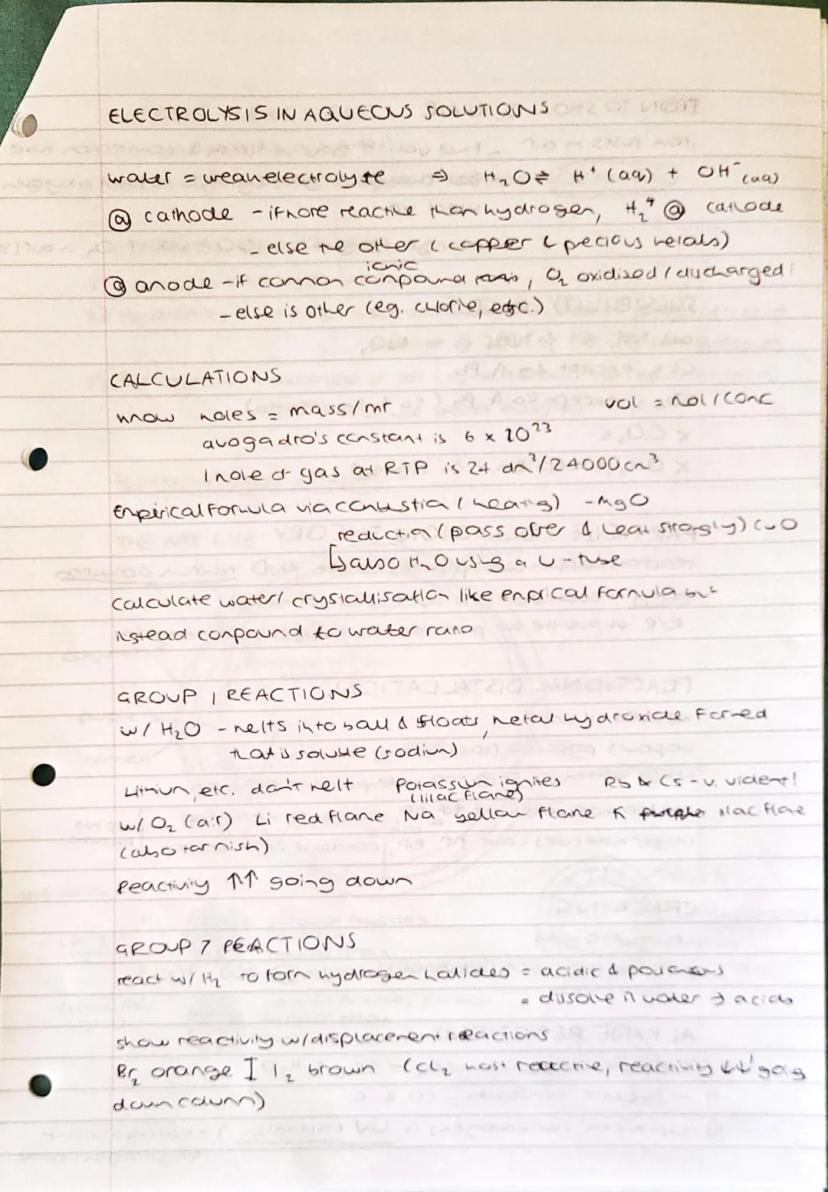 ELECTROLYSIS IN AQUEOUS SOLUTIONS
water = weak electrolyte ⇒ H₂O ⇌ H⁺ (aq) + OH⁻ (aq)
@ cathode - if more reactive than hydrogen, H₂⁺ @ cathode
- else the other (copper & precious metals)
@ anode - if common ionic compound, O₂ oxidised / discharged
- else is other (eg. chlorine, etc.)
CALCULATIONS
know moles = mass/mr vol = mol / conc
avogadro's constant is 6 x 10²³
1 mole of gas at RTP is 24 dm³/24000cm³
Empirical Formula via combustion (heating) - MgO
reduction (pass over & heat strongly) CuO
↳ also H₂O using a U-tube
calculate water/ crystallisation like emprical formula but
instead compound to water ratio
GROUP 1 REACTIONS
w/ H₂O - melts into ball & floats, metal hydroxide formed
that is soluble (sodium)
Lithium, etc. don't melt Potassium ignites (lilac flame) Rb & Cs - v. violent!
w/ O₂ (air) Li red flame Na yellow flame K lilac flame
(also tarnish)
Reactivity ↑↑ going down
GROUP 7 REACTIONS
react w/ H₂ to form hydrogen halides = acidic & poisonous
= dissolve in water → acids
show reactivity w/ displacement reactions
Br₂ orange I I₂ brown (Cl₂ most reactive, reactivity ↓↓ going
down column)